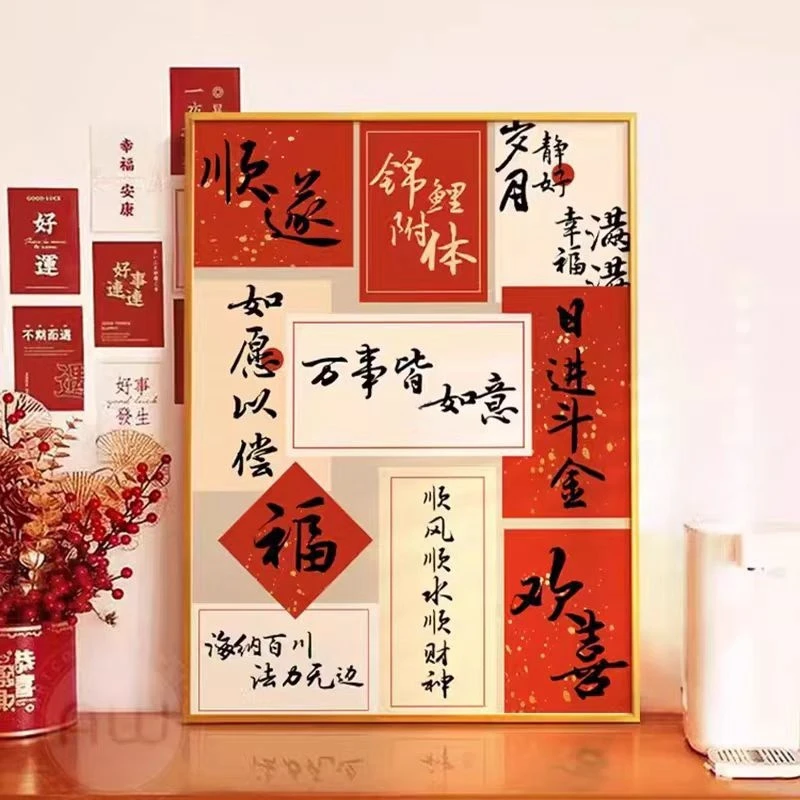 顺遂
锦鲤
附体
岁月
静好
幸福
满满
如愿以偿
万事皆
如意
日进斗金
福
顺风顺水顺财神
欢喜
海纳百川
法力无边
幸福
安康
GOOD LUCK
好
運
好事
連連
不期而遇
遇
好事
發生
good luck
恭喜